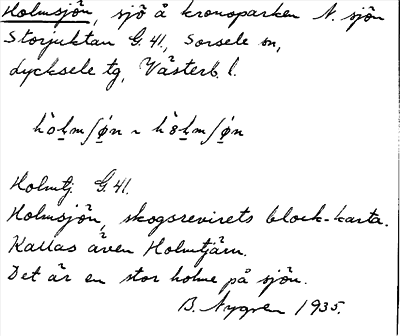 Holmsjön, sjö å kronoparken N. sjön
Storjuktan G. 41, Sorsele sn,
Lycksele tg, Västerb. l.
Holmtj. G. 41.
Holmsjön, skogsrevirets block-karta.
Kallas även Holmtjärn.
Det är en stor holme på sjön.
B. Nygren 1935.